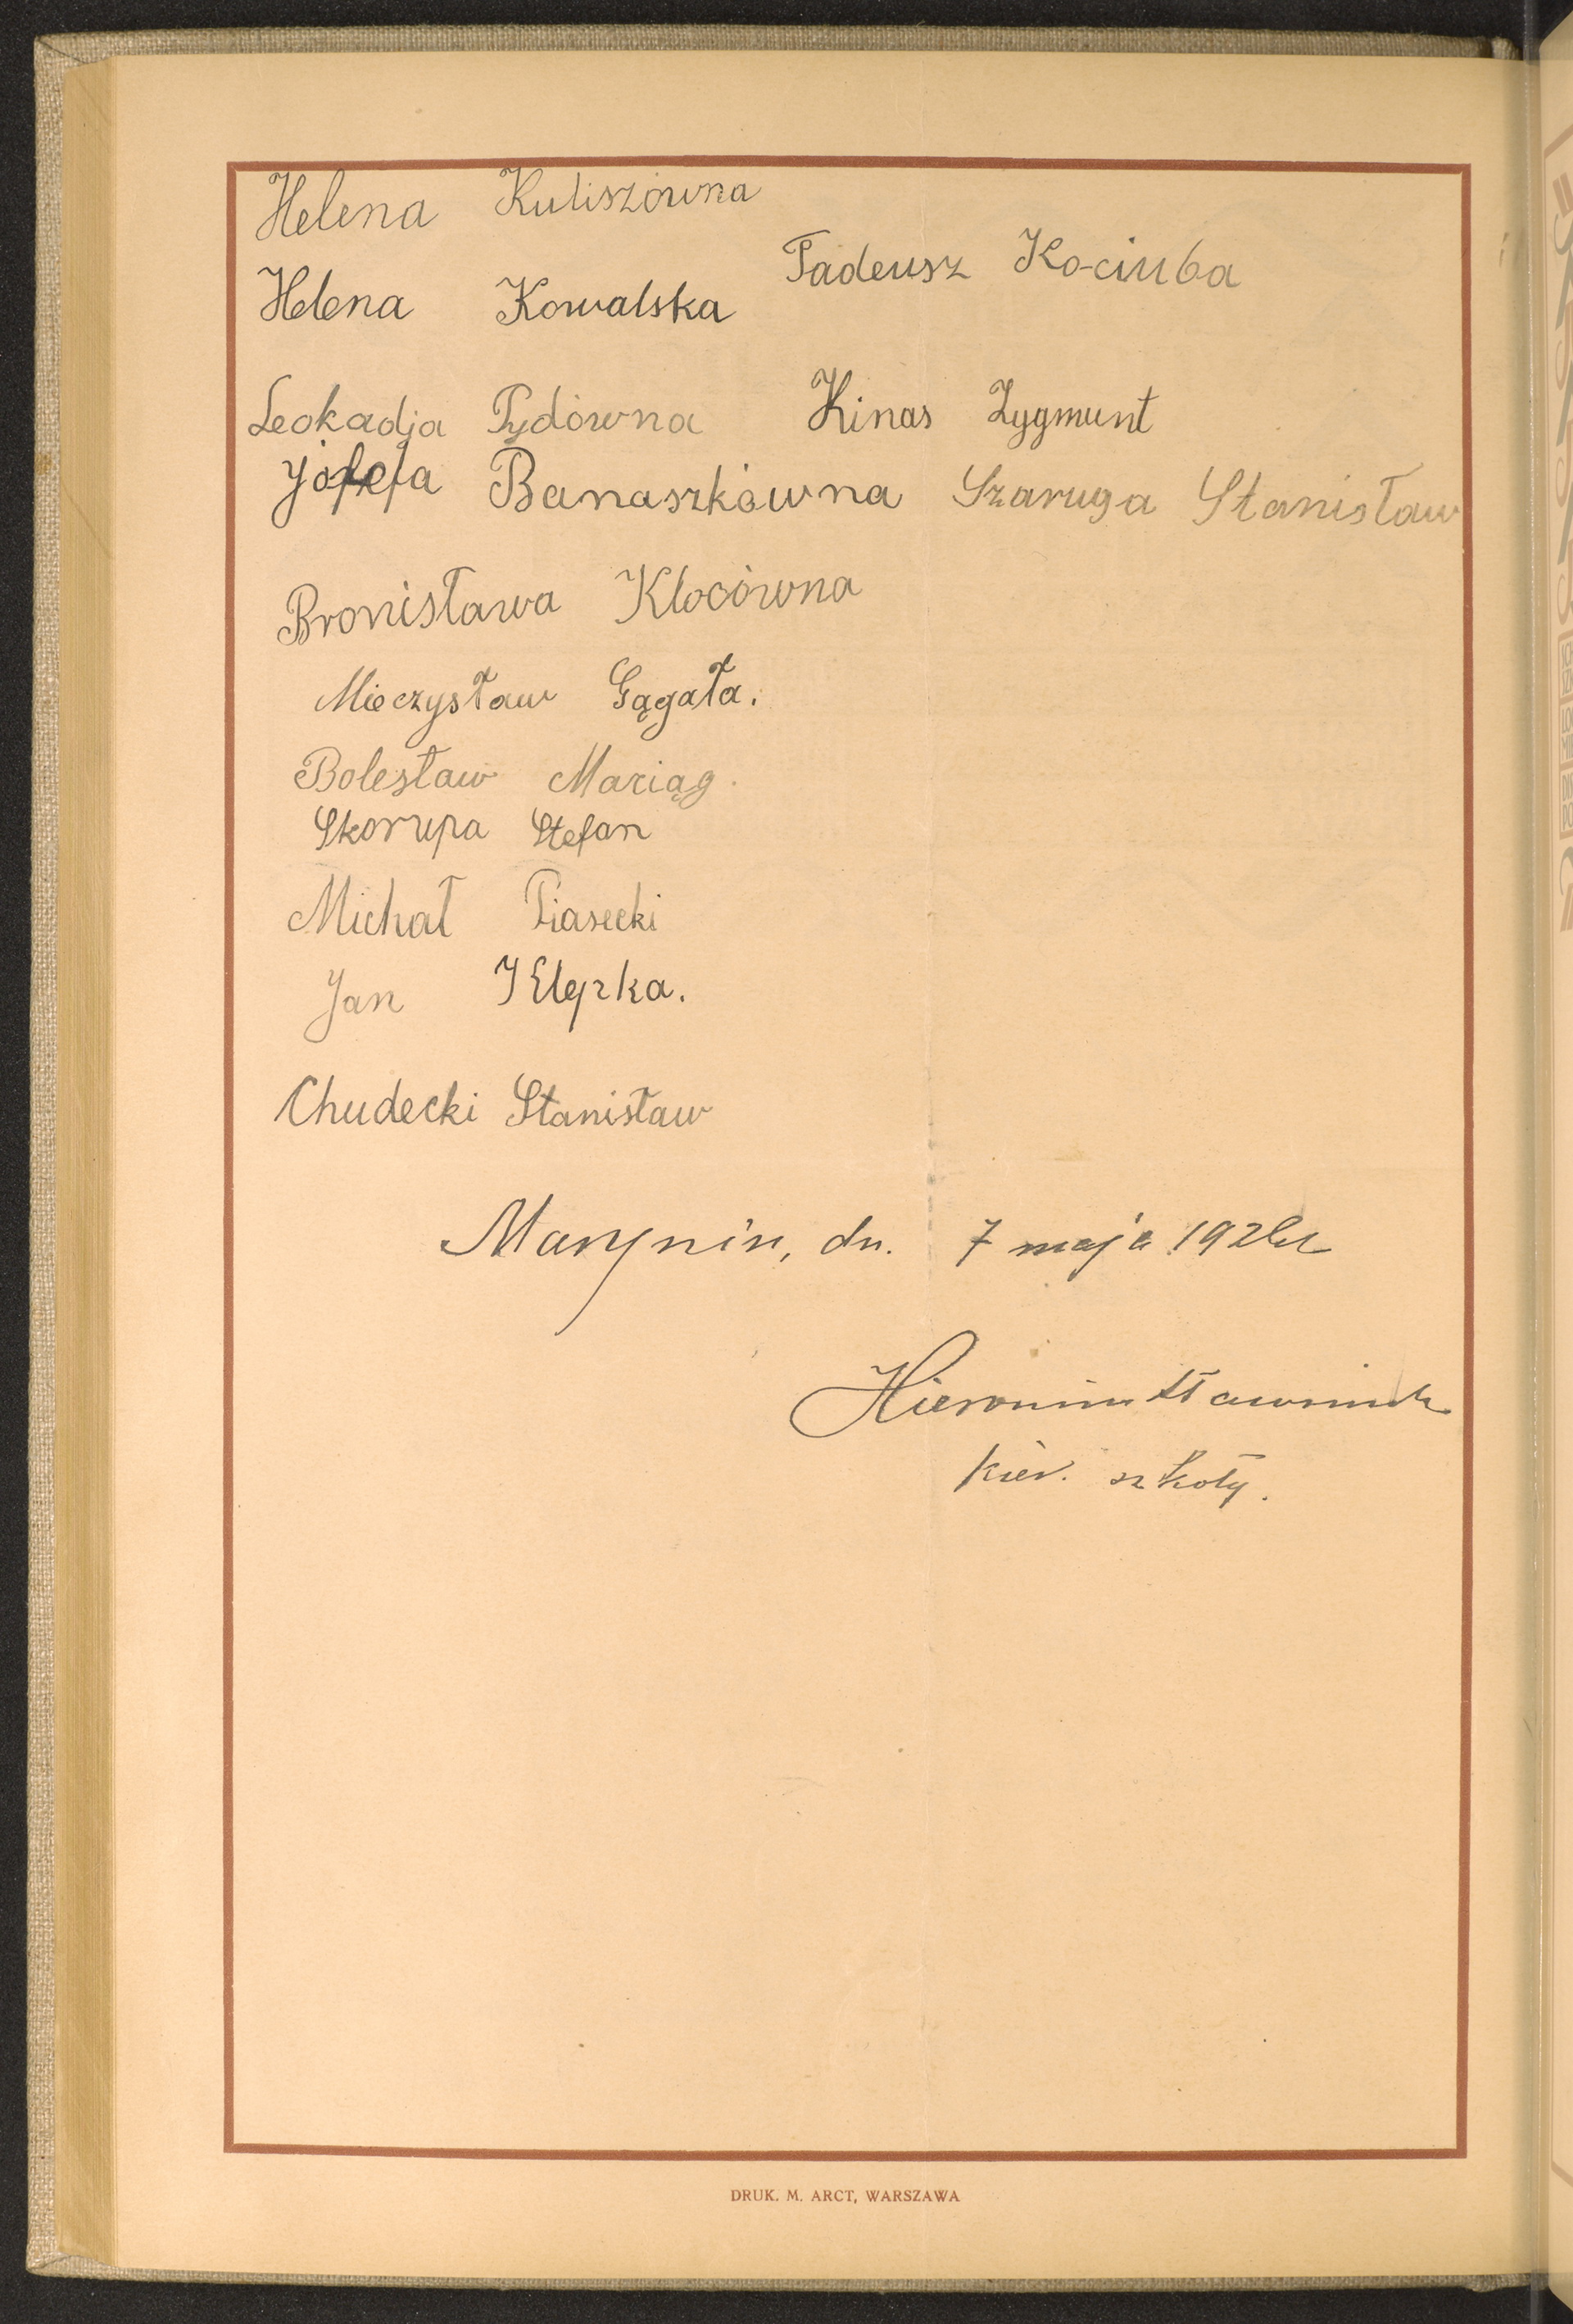 Helena Kuliszówna
Tadeusz Kociuba
Helena Kowalska
Leokadja Pydówna Kinas Zygmunt
Józefa Banaszkówna Szaruga Stanisław
Bronisława Klocówna
Mieczysław Gągała.
Bolesław Maciąg.
Skorupa Stefan
Michał Piasecki
Jan Klepka.
Chudecki Stanisław
Marynin, dn. 7 maja 1926 r
Hieronim
kier. szkoły.
DRUK. M. ARCT, WARSZAWA